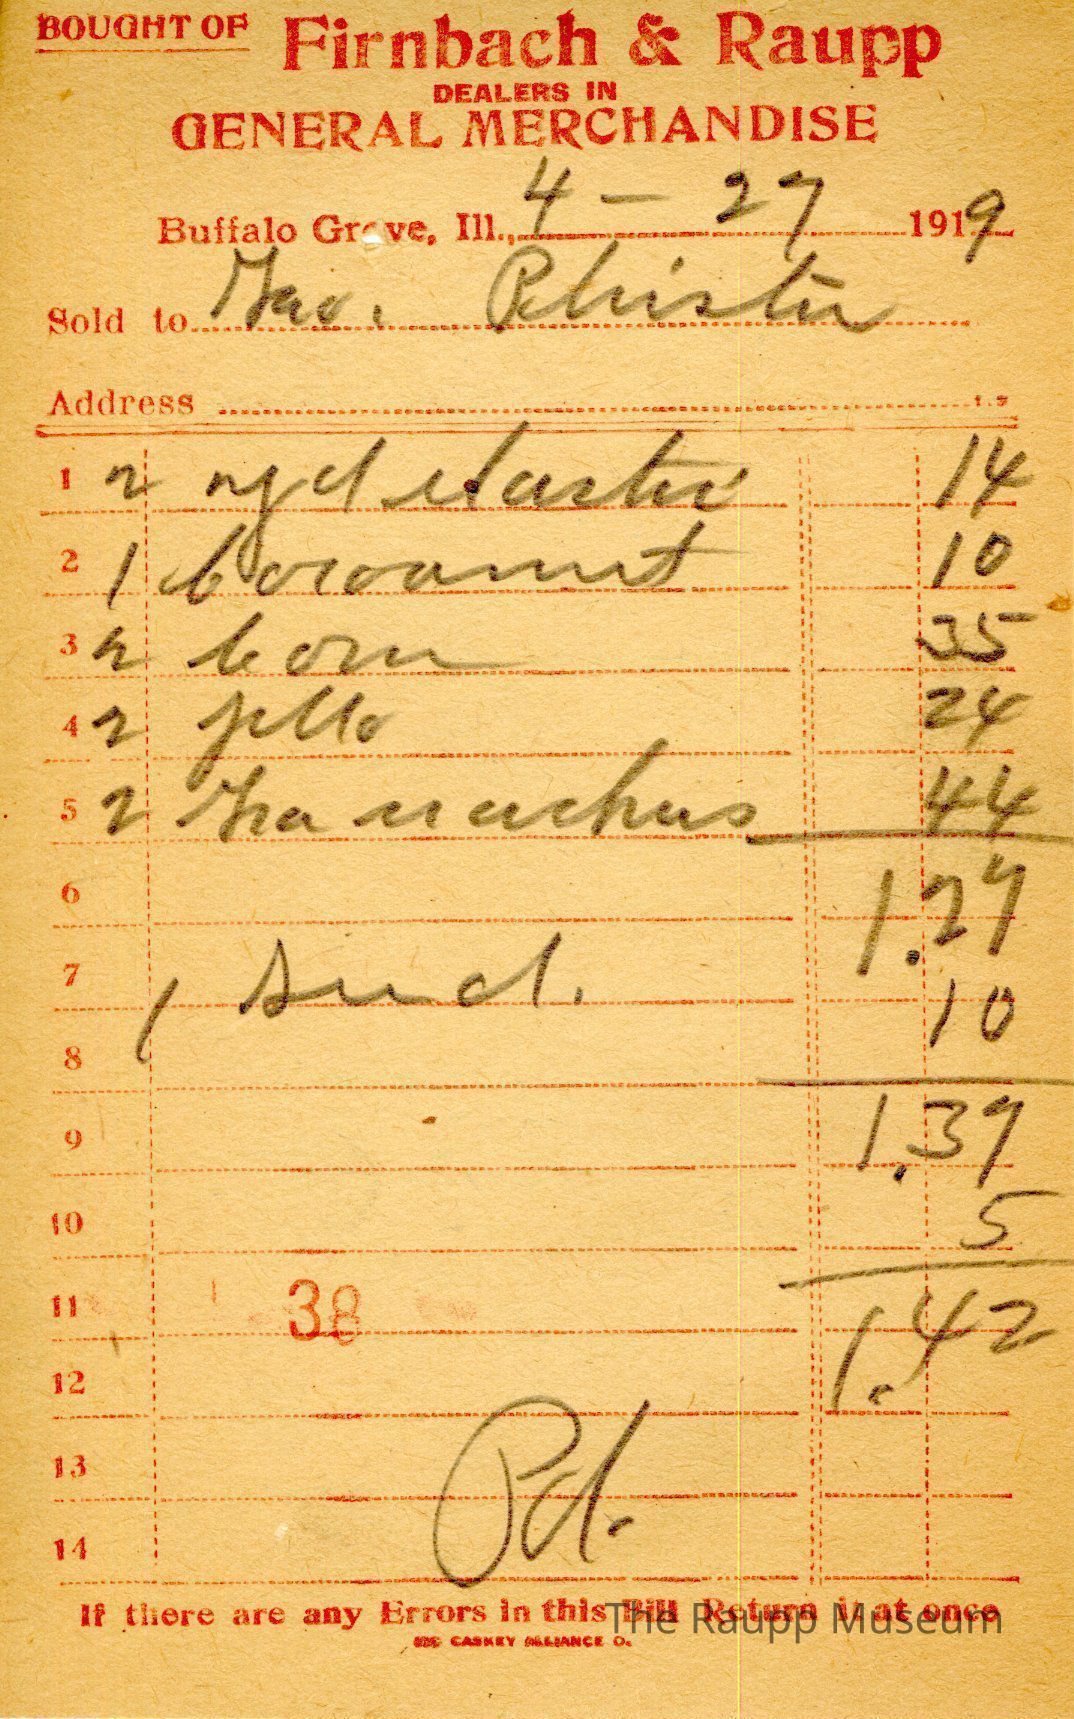 BOUGHT OF Firnbach & Raupp
DEALERS IN
GENERAL MERCHANDISE
Buffalo Grove, Ill., 4 - 27 1919
Sold to Geo. Phister
Address
1 2 yd elastic 14
2 1 Cocoanut 10
3 2 Corn 35
4 2 jello 24
5 2 44
6 1.27
7 1 10
8
9 1.37
10 5
11 38 1.42
12
13 Pd.
14
If there are any Errors in this Bill Return it at once
The Raupp Museum